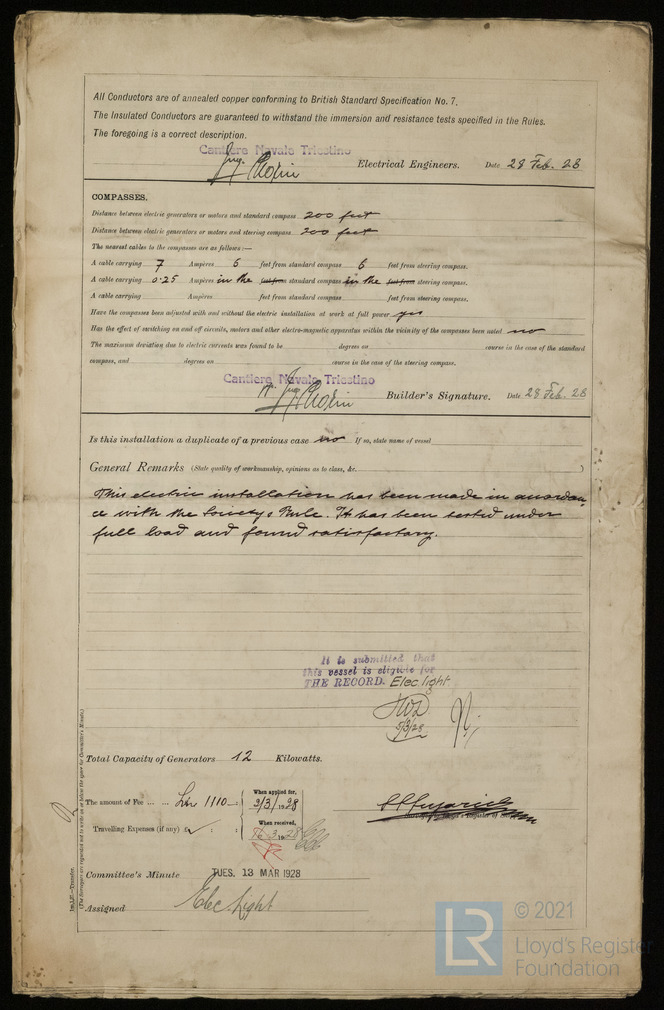 All Conductors are of annealed copper conforming to British Standard Specification No. 7.
The Insulated Conductors are guaranteed to withstand the immersion and resistance tests specified in the Rules.
The foregoing is a correct description.
Cantiere Navale Triestino
Electrical Engineers. Date 28 Feb. 28
COMPASSES.
Distance between electric generators or motors and standard compass 200 feet
Distance between electric generators or motors and steering compass 200 feet
The nearest cables to the compasses are as follows:—
A cable carrying 7 Ampères 6 feet from standard compass 6 feet from steering compass.
A cable carrying 0.25 Ampères in the feet from standard compass in the feet from steering compass.
A cable carrying Ampères feet from standard compass feet from steering compass.
Have the compasses been adjusted with and without the electric installation at work at full power yes
Has the effect of switching on and off circuits, motors and other electro-magnetic apparatus within the vicinity of the compasses been noted no
The maximum deviation due to electric currents was found to be degrees on course in the case of the standard
compass, and degrees on course in the case of the steering compass.
Cantiere Navale Triestino
Builder's Signature. Date 28 Feb. 28
Is this installation a duplicate of a previous case no If so, state name of vessel
General Remarks (State quality of workmanship, opinions as to class, &c.)
This electric installation has been made in accordan
ce with the Society's Rule. It has been tested under
full load and found satisfactory.
It is submitted that
this vessel is eligible for
THE RECORD. Elec. light.
5/3/28
Total Capacity of Generators 12 Kilowatts.
The amount of Fee ... ... Lire 1110 : When applied for, 2/3/1928
Travelling Expenses (if any) £ : : When received, 16.3.1928
Committee's Minute TUES. 13 MAR 1928
Assigned Elec. Light
(The Surveyors are requested not to write on or below the space for Committee's Minute.)
© 2021
LR Lloyd's Register
Foundation